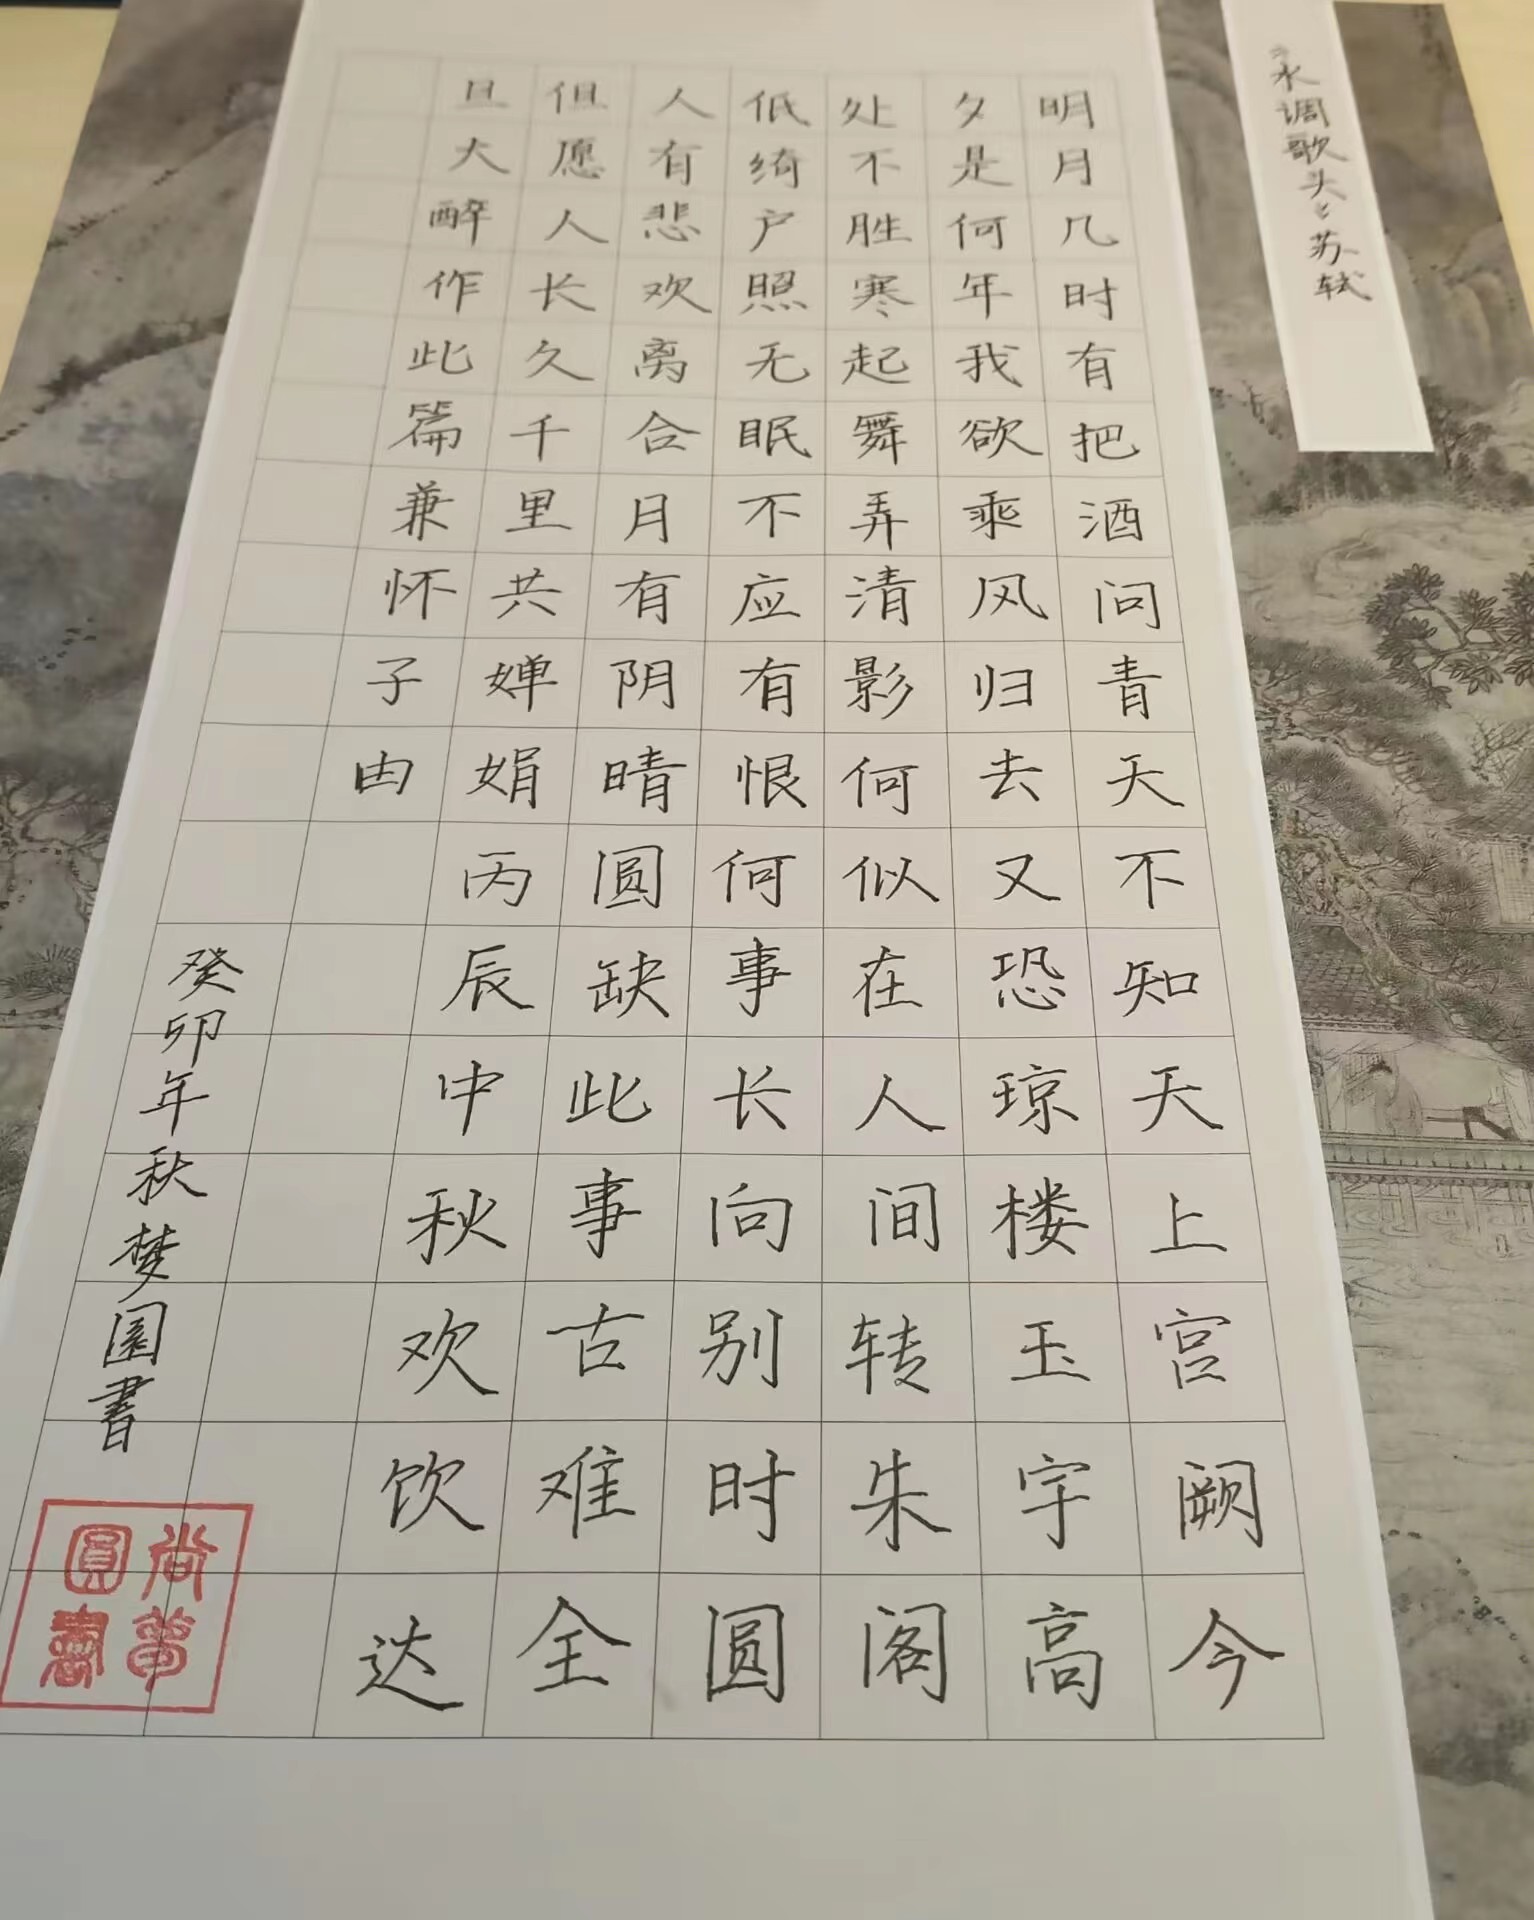 水调歌头 苏轼
明月几时有把酒问青天不知天上宫阙今
夕是何年我欲乘风归去又恐琼楼玉宇高
处不胜寒起舞弄清影何似在人间转朱阁
低绮户照无眠不应有恨何事长向别时圆
人有悲欢离合月有阴晴圆缺此事古难全
但愿人长久千里共婵娟丙辰中秋欢饮达
旦大醉作此篇兼怀子由
癸卯年秋梦圓書
尚夢
圓書